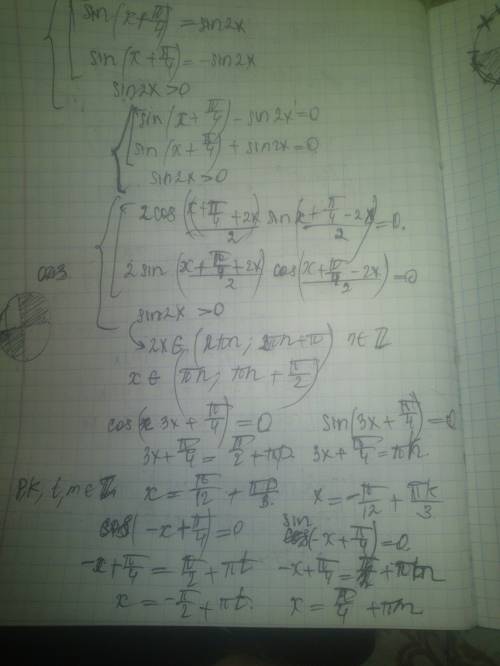 sin(x+π/4) = sin2x
sin(x+π/4) = -sin2x
sin2x>0
sin(x+π/4) - sin2x=0
sin(x+π/4) + sin2x=0
sin2x>0
2cos (x+π/4+2x)/2 sin (x+π/4-2x)/2 =0.
2sin (x+π/4+2x)/2 cos (x+π/4-2x)/2 =0
sin2x >0
2x∈ (2πn; 2πn+π) n∈Z
x∈ (πn; πn+π/2)
cos(3x+π/4)=0 sin(3x+π/4)=0
3x+π/4=π/2+πp 3x+π/4=πk
p,k,t,m∈Z x=π/12+πp/3 x=-π/12+πk/3
cos(-x+π/4)=0 sin(-x+π/4)=0
-x+π/4=π/2+πt -x+π/4=πm
x=-π/2+πt x=π/4+πm